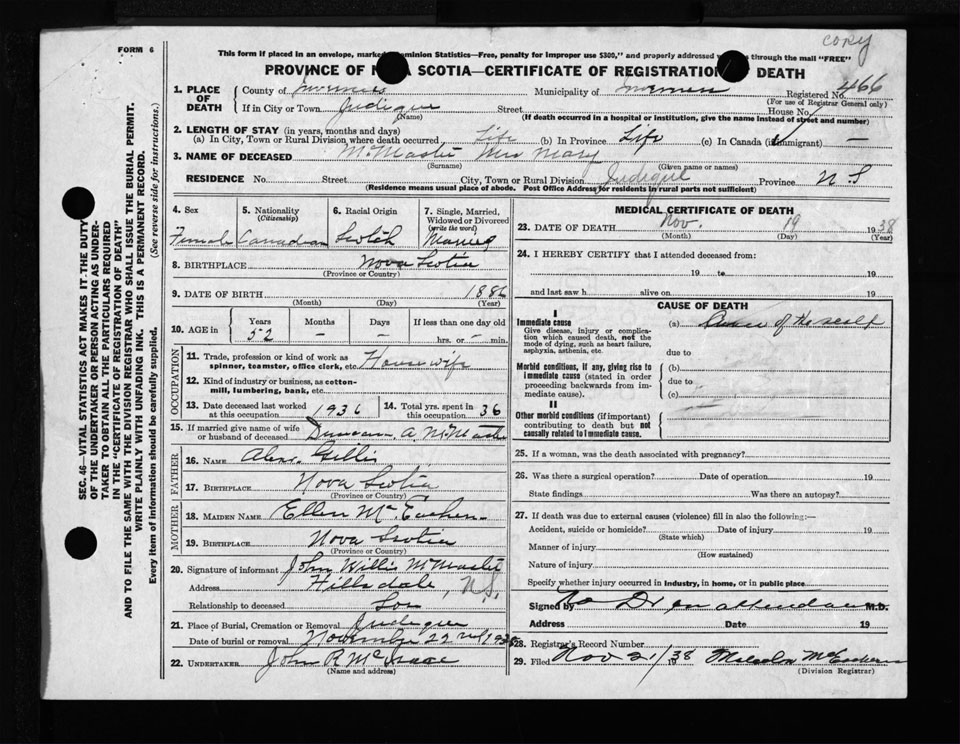 copy
FORM 6
This form if placed in an envelope, marked Dominion Statistics—Free, penalty for improper use $300," and properly addressed through the mail "FREE"
PROVINCE OF SCOTIA—CERTIFICATE OF REGISTRATION DEATH
1. PLACE OF DEATH
County of Inverness Municipality of Inverness Registered No. 466
(For use of Registrar General only)
If in City or Town Judique Street House No.
(Name) (If death occurred in a hospital or institution, give the name instead of street and number)
2. LENGTH OF STAY (in years, months and days)
(a) In City, Town or Rural Division where death occurred Life (b) In Province Life (c) In Canada (if immigrant) —
3. NAME OF DECEASED McMaster Mrs Mary
(Surname) (Given name or names)
RESIDENCE No. Street City, Town or Rural Division Judique Province N S
(Residence means usual place of abode. Post Office Address for residents in rural parts not sufficient)
4. Sex
Female
5. Nationality
(Citizenship)
Canadian
6. Racial Origin
Scotch
7. Single, Married, Widowed or Divorced
(write the word)
Married
8. BIRTHPLACE Nova Scotia
(Province or Country)
9. DATE OF BIRTH 1886
(Month) (Day) (Year)
10. AGE in
Years Months Days If less than one day old
52 — — hrs. or — min.
OCCUPATION
11. Trade, profession or kind of work as
spinner, teamster, office clerk, etc. Housewife
12. Kind of industry or business, as cotton-
mill, lumbering, bank, etc.
13. Date deceased last worked
at this occupation 1936
14. Total yrs. spent in
this occupation 36
15. If married give name of wife
or husband of deceased Duncan A. McMaster
FATHER
16. NAME Alex. Gillis
17. BIRTHPLACE Nova Scotia
(Province or Country)
MOTHER
18. MAIDEN NAME Ellen McEachen
19. BIRTHPLACE Nova Scotia
(Province or Country)
20. Signature of informant John Willis McMaster
Address Hillsdale, N.S.
Relationship to deceased Son
21. Place of Burial, Cremation or Removal Judique
Date of burial or removal November 22nd 1938
22. UNDERTAKER John R McIsaac
(Name and address)
MEDICAL CERTIFICATE OF DEATH
23. DATE OF DEATH Nov. 19 1938
(Month) (Day) (Year)
24. I HEREBY CERTIFY that I attended deceased from:
19 to 19
and last saw h alive on 19
CAUSE OF DEATH
I
Immediate cause
Give disease, injury or complica-
tion which caused death, not the
mode of dying, such as heart failure,
asphyxia, asthenia, etc.
(a) of the scalp
due to
Morbid conditions, if any, giving rise to
immediate cause (stated in order
proceeding backwards from im-
mediate cause).
(b)
due to
(c)
II
Other morbid conditions (if important)
contributing to death but not
causally related to immediate cause.
25. If a woman, was the death associated with pregnancy?
26. Was there a surgical operation? Date of operation 19
State findings Was there an autopsy?
27. If death was due to external causes (violence) fill in also the following:—
Accident, suicide or homicide? Date of injury 19
(State which)
Manner of injury
(How sustained)
Nature of injury
Specify whether injury occurred in industry, in home, or in public place
Signed by No Dr in attendance M.D.
Address Date 19
28. Registrar's Record Number
29. Filed Nov 21/38 19 Malcolm McEachern
(Division Registrar)
SEC. 46—VITAL STATISTICS ACT MAKES IT THE DUTY
OF THE UNDERTAKER OR PERSON ACTING AS UNDER-
TAKER TO OBTAIN ALL THE PARTICULARS REQUIRED
IN THE "CERTIFICATE OF REGISTRATION OF DEATH"
AND TO FILE THE SAME WITH THE DIVISION REGISTRAR WHO SHALL ISSUE THE BURIAL PERMIT.
WRITE PLAINLY WITH UNFADING INK. THIS IS A PERMANENT RECORD.
Every item of information should be carefully supplied. (See reverse side for instructions.)